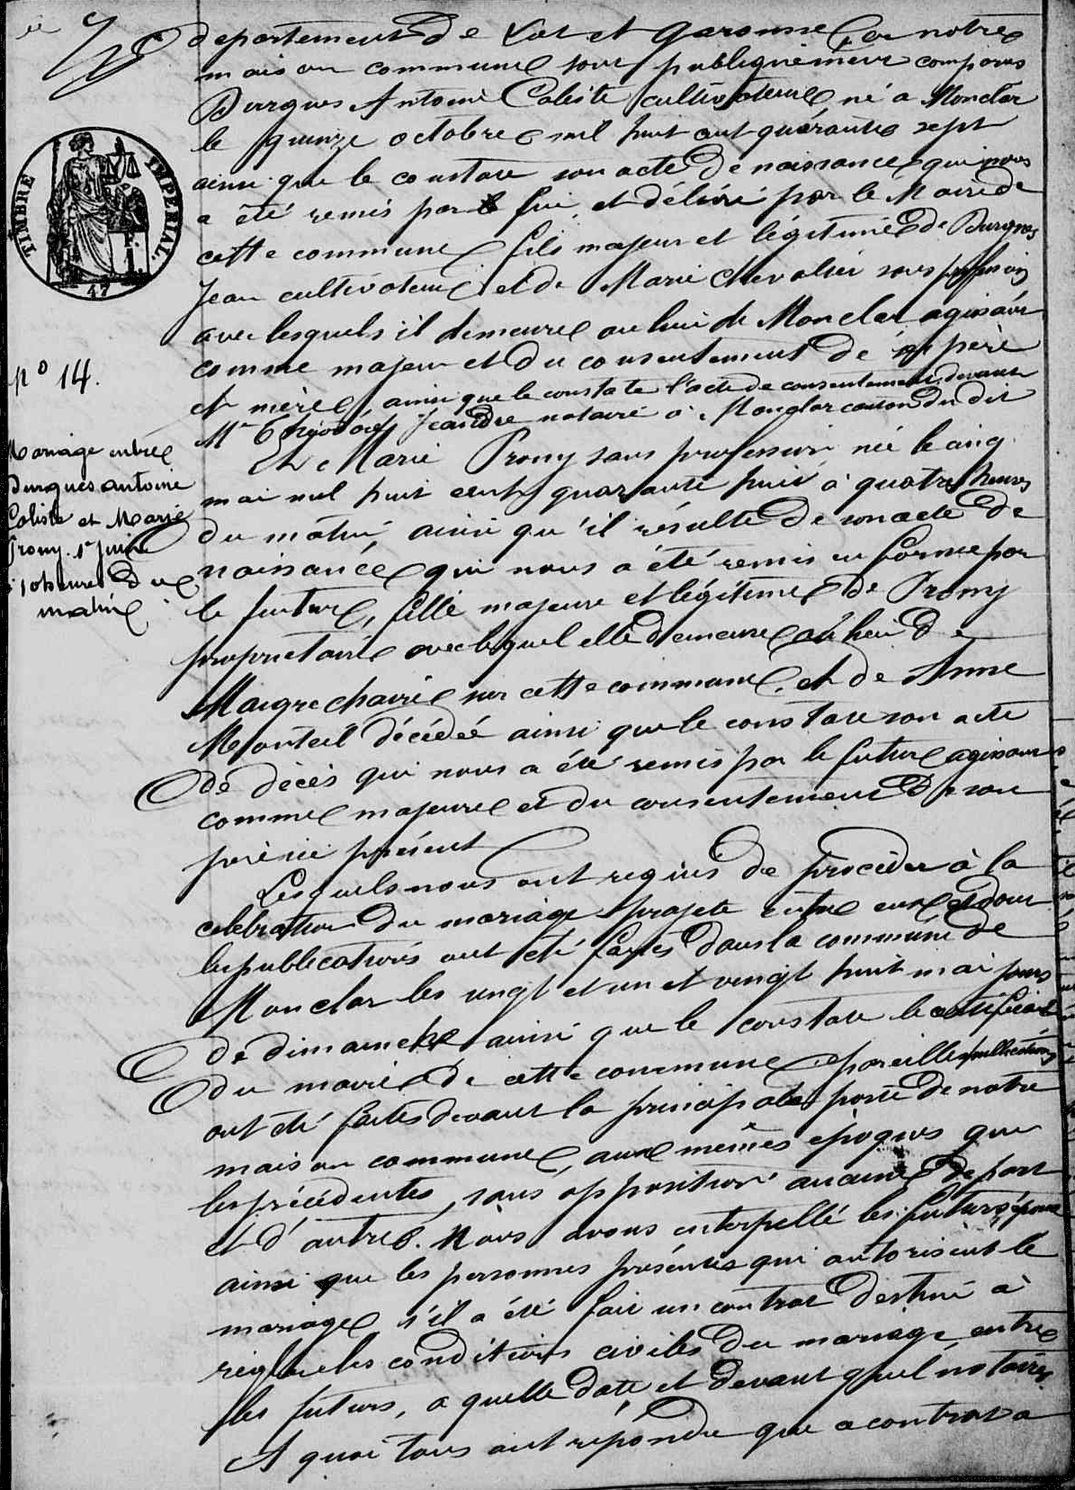 TIMBRE IMPERIAL.
47
N° 14.
Mariage entre
Durgues antoine
Caliste et Marie
Promy. 1er juin
10 heures du
matin
departement de Lot et Garonne, en notre
maison commune sont publiquement comparus
Durgues Antoine Caliste cultivateur né a Monclar
le quinze octobre mil huit cent quarante sept
ainsi que le constate son acte de naissance qui nous
a été remis par lui et délivré par le Maire de
cette commune fils majeur et légitime de Durgues
Jean cultivateur et de Marie Chevalier sans profession
avec lesquels il demeure au lieu de Monclar agissant
comme majeur et du consentement de ses père
et mère, ainsi que le constate l'acte de consentement devant
Me notaire à Monclar canton du dit
Et Marie Promy sans profession née le cinq
mai mil huit cent quarante huit à quatre heures
du matin ainsi qu'il résulte de son acte de
naissance qui nous a été remis en forme par
le future, fille majeure et légitime de Promy
proprietaire avec lequel elle demeure au lieu de
Maigrechaire sur cette commune, et de Anne
Monteil décédée ainsi que le constate son acte
de décès qui nous a été remis par le future agissant
comme majeure et du consentement de son
père ici présent
Lesquels nous ont requis de procéder à la
celebration du mariage projeté entre eux et dont
les publications ont été faites dans la commune de
Monclar les vingt et un et vingt huit mai jours
de dimanche ainsi que le constate le certificat
du maire de cette commune et pareilles publications
ont été faites devant la principale porte de notre
maison commune, aux mêmes epoques que
les précédentes, sans opposition aucune de part
et d'autre. Nous avons interpellé les futurs époux
ainsi que les personnes présentes qui autorisent le
mariage s'il a été fait un contrat destiné à
regler les conditions civiles du mariage entre
les futurs, a quelle date et devant quel notaire
A quoi tous ont répondu que ce contrat a